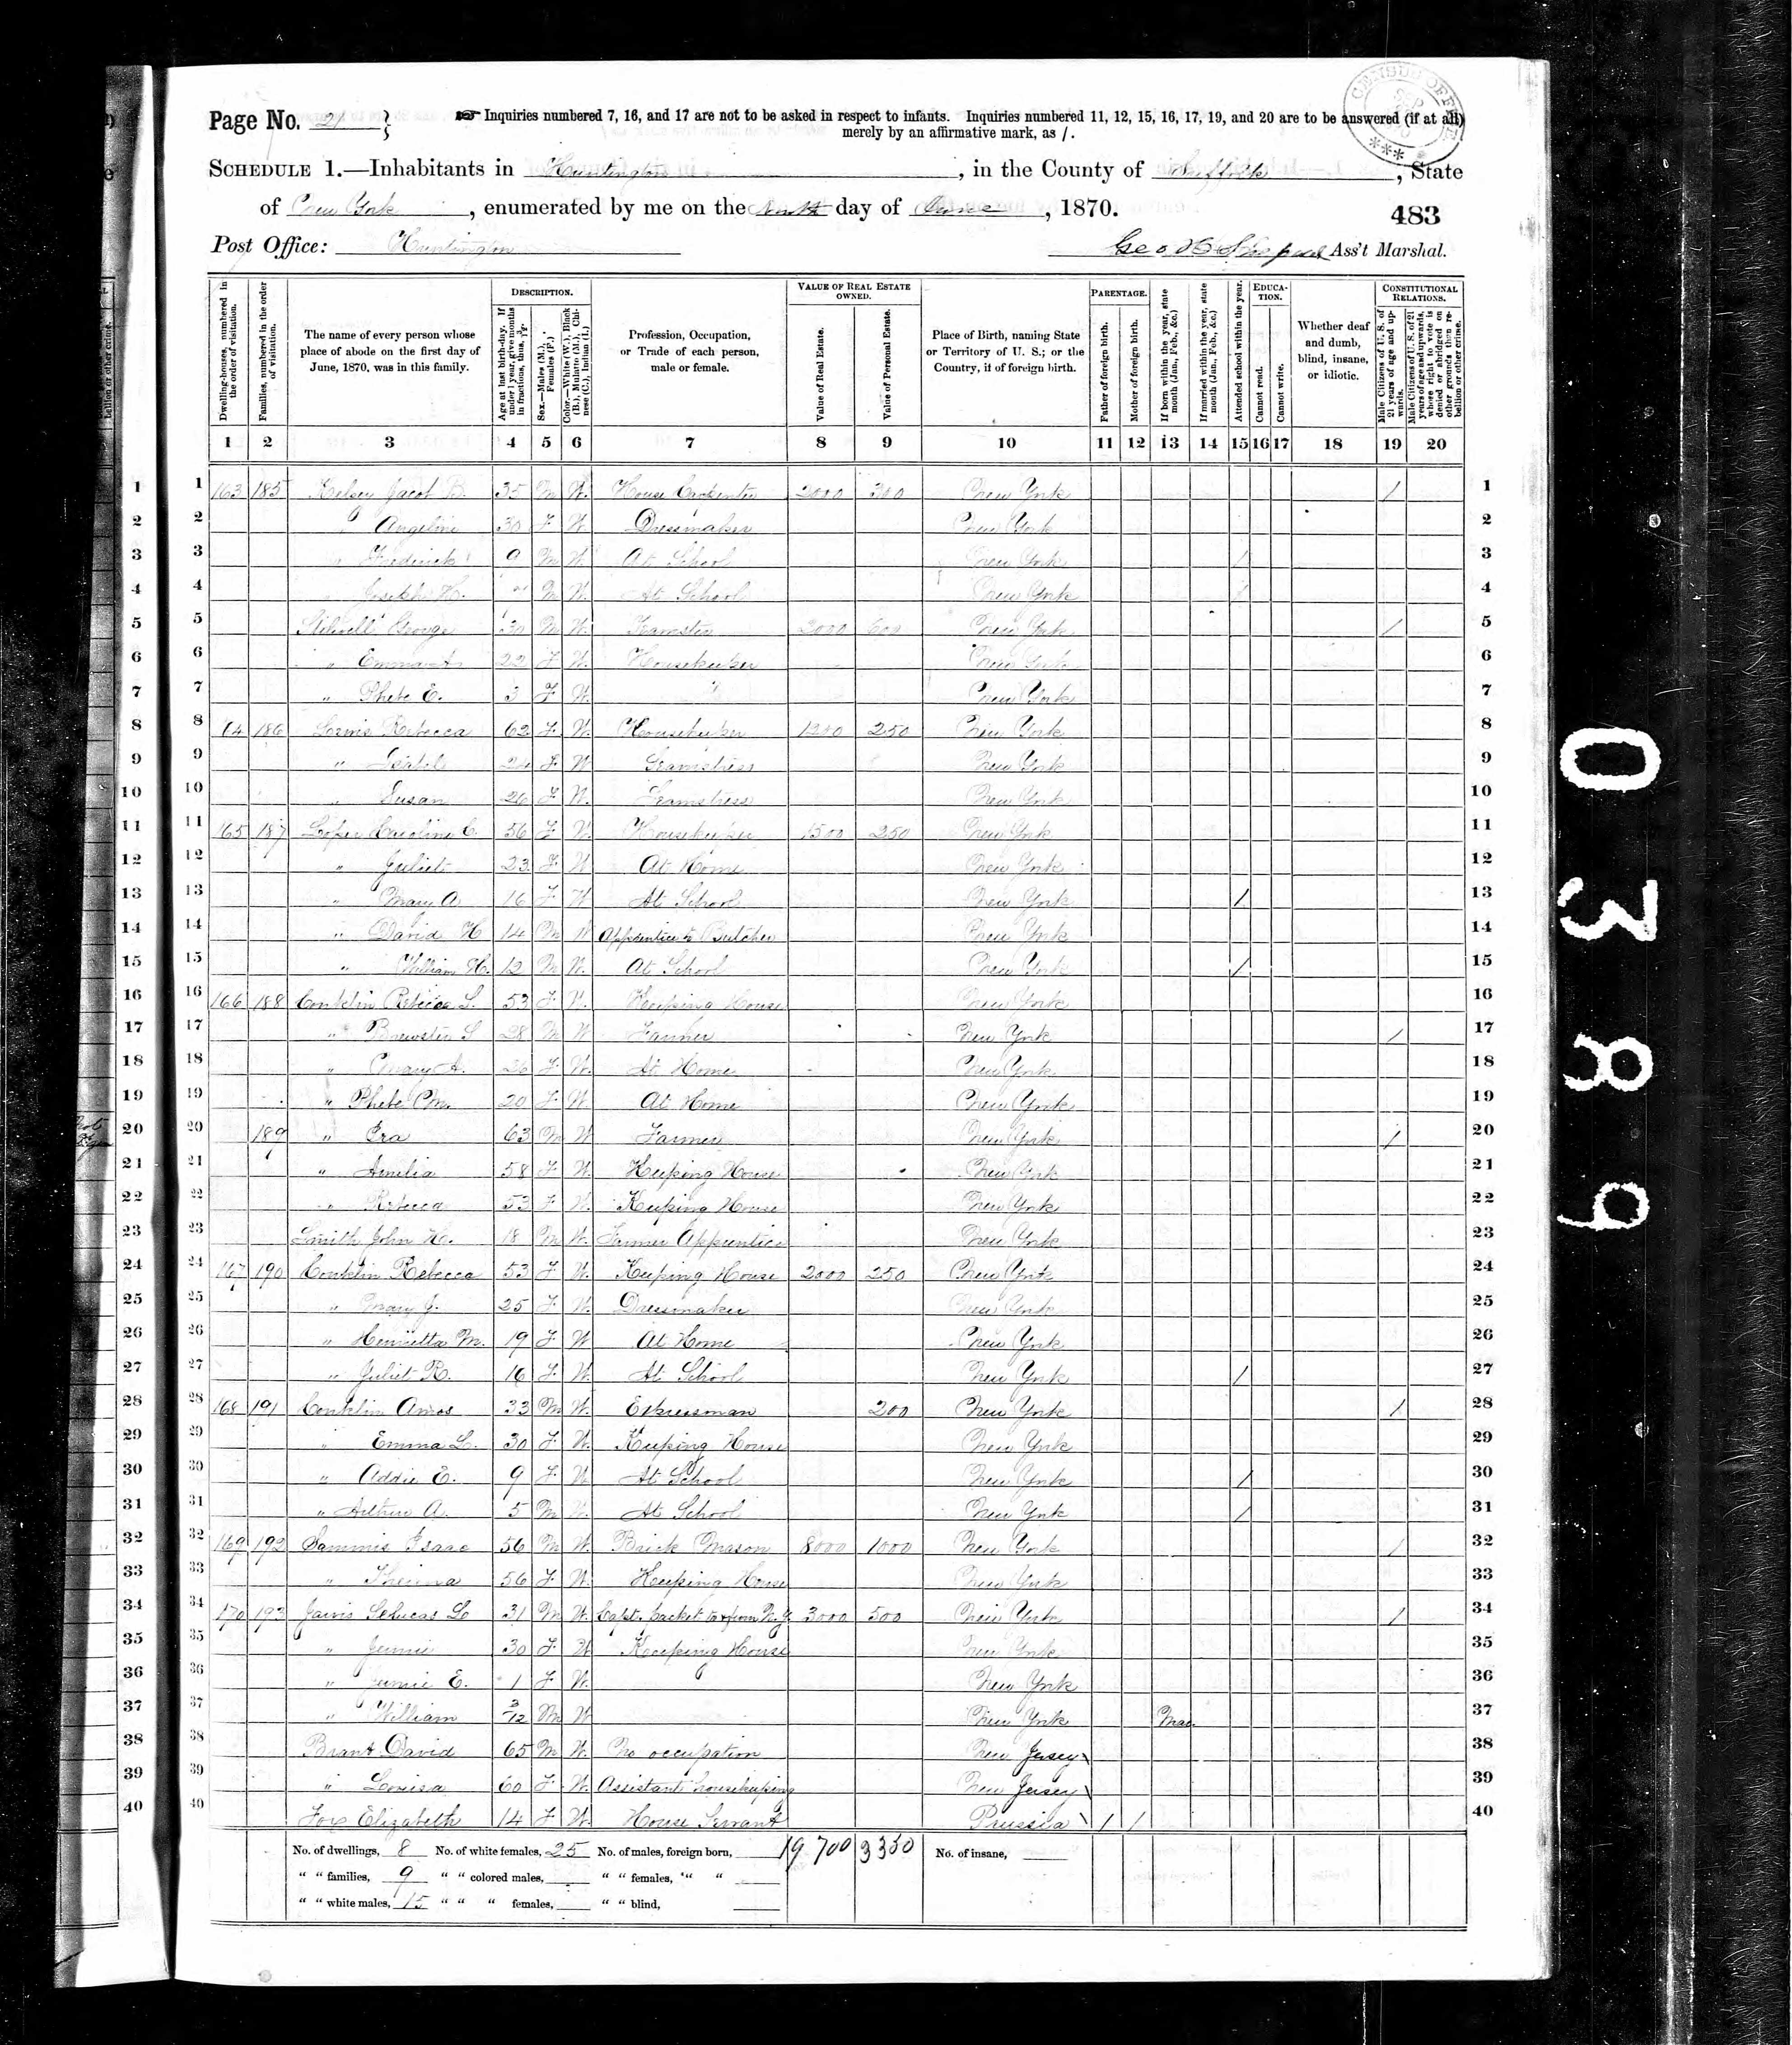 Page No. 21 } Inquiries numbered 7, 16, and 17 are not to be asked in respect to infants. Inquiries numbered 11, 12, 15, 16, 17, 19, and 20 are to be answered (if at all)
merely by an affirmative mark, as /.
CENSUS OFFICE
SCHEDULE 1.—Inhabitants in Huntington, in the County of Suffolk, State
of New York, enumerated by me on the day of June, 1870.
483
Post Office: Huntington
Geo Ass't Marshal.
Dwelling-houses, numbered in the order of visitation.
Families, numbered in the order of visitation.
The name of every person whose place of abode on the first day of June, 1870, was in this family.
DESCRIPTION.
Age at last birth-day. If under 1 year, give months in fractions, thus, 3/12.
Sex.—Males (M.), Females (F.)
Color.—White (W.), Black (B.), Mulatto (M.), Chinese (C.), Indian (I.)
Profession, Occupation, or Trade of each person, male or female.
VALUE OF REAL ESTATE OWNED.
Value of Real Estate.
Value of Personal Estate.
Place of Birth, naming State or Territory of U. S.; or the Country, if of foreign birth.
PARENTAGE.
Father of foreign birth.
Mother of foreign birth.
If born within the year, state month (Jan., Feb., &c.)
If married within the year, state month (Jan., Feb., &c.)
EDUCATION.
Attended school within the year.
Cannot read.
Cannot write.
Whether deaf and dumb, blind, insane, or idiotic.
CONSTITUTIONAL RELATIONS.
Male Citizens of U. S. of 21 years of age and upwards.
Male Citizens of U. S. of 21 years of age and upwards, whose right to vote is denied or abridged on other grounds than rebellion or other crime.
1 2 3 4 5 6 7 8 9 10 11 12 13 14 15 16 17 18 19 20
1 163 185 Kelsey Jacob B. 35 M W. House Carpenter 2000 300 New York / 1
2 " Angeline 30 F W. Dressmaker New York 2
3 " Frederick 9 M W. At School New York / 3
4 " Joseph H. M W. At School New York / 4
5 Stilwell George 30 M W. Teamster 600 New York / 5
6 " Emma A. 22 F W. Housekeeper New York 6
7 " Phebe E. 3 F W. " New York 7
8 186 Rebecca 62 F W. Housekeeper 250 New York 8
9 " F W Seamstress New York 9
10 " Susan 26 F W. Seamstress New York 10
11 165 187 Caroline C. 56 F W. Housekeeper 1500 250 New York 11
12 " Juliet 23 F W At Home New York 12
13 " Mary A 16 F W At School New York / 13
14 " David H 14 M W Apprentice to Butcher New York 14
15 " William H. 12 M W. At School New York / 15
16 166 188 Conklin Rebecca S. 53 F W. Keeping House New York 16
17 " Brewster S 28 M W Farmer New York / 17
18 " Mary A. 26 F W. At Home New York 18
19 " Phebe M. 20 F W At Home New York 19
20 189 " Ira 63 M W Farmer New York / 20
21 " Amelia 58 F W. Keeping House New York 21
22 " Rebecca 53 F W. Keeping House New York 22
23 Smith John H. 18 M W. Farmer Apprentice New York 23
24 167 190 Conklin Rebecca 53 F W. Keeping House 2000 250 New York 24
25 " Mary J. 25 F W. Dressmaker New York 25
26 " Henrietta M. 19 F W At Home New York 26
27 " Juliet R. 16 F W. At School New York / 27
28 168 191 Conklin Amos 33 M W. Expressman 200 New York / 28
29 " Emma L. 30 F W. Keeping House New York 29
30 " Addie E. 9 F W At School New York / 30
31 " Arthur A. 5 M W At School New York / 31
32 169 192 Sammis Isaac 56 M W. Brick Mason 8000 1000 New York / 32
33 " 56 F W. Keeping House New York 33
34 170 193 Jarvis L 31 M W. Capt. packet to & from N.Y. 3000 500 New York / 34
35 " Jennie 30 F W Keeping House New York 35
36 " Jennie E. 1 F W. New York 36
37 " William 3/12 M W New York Mar. 37
38 Brant David 65 M W. No occupation New Jersey \ 38
39 " Louisa 60 F W. Assistant housekeeping New Jersey \ 39
40 Fox Elizabeth 14 F W. House Servant Prussia \ / / 40
No. of dwellings, 8 No. of white females, 25 No. of males, foreign born, 19 700 3350 No. of insane,
" " families, 9 " " colored males, " " females, " "
" " white males, 15 " " " females, " " blind,
0389